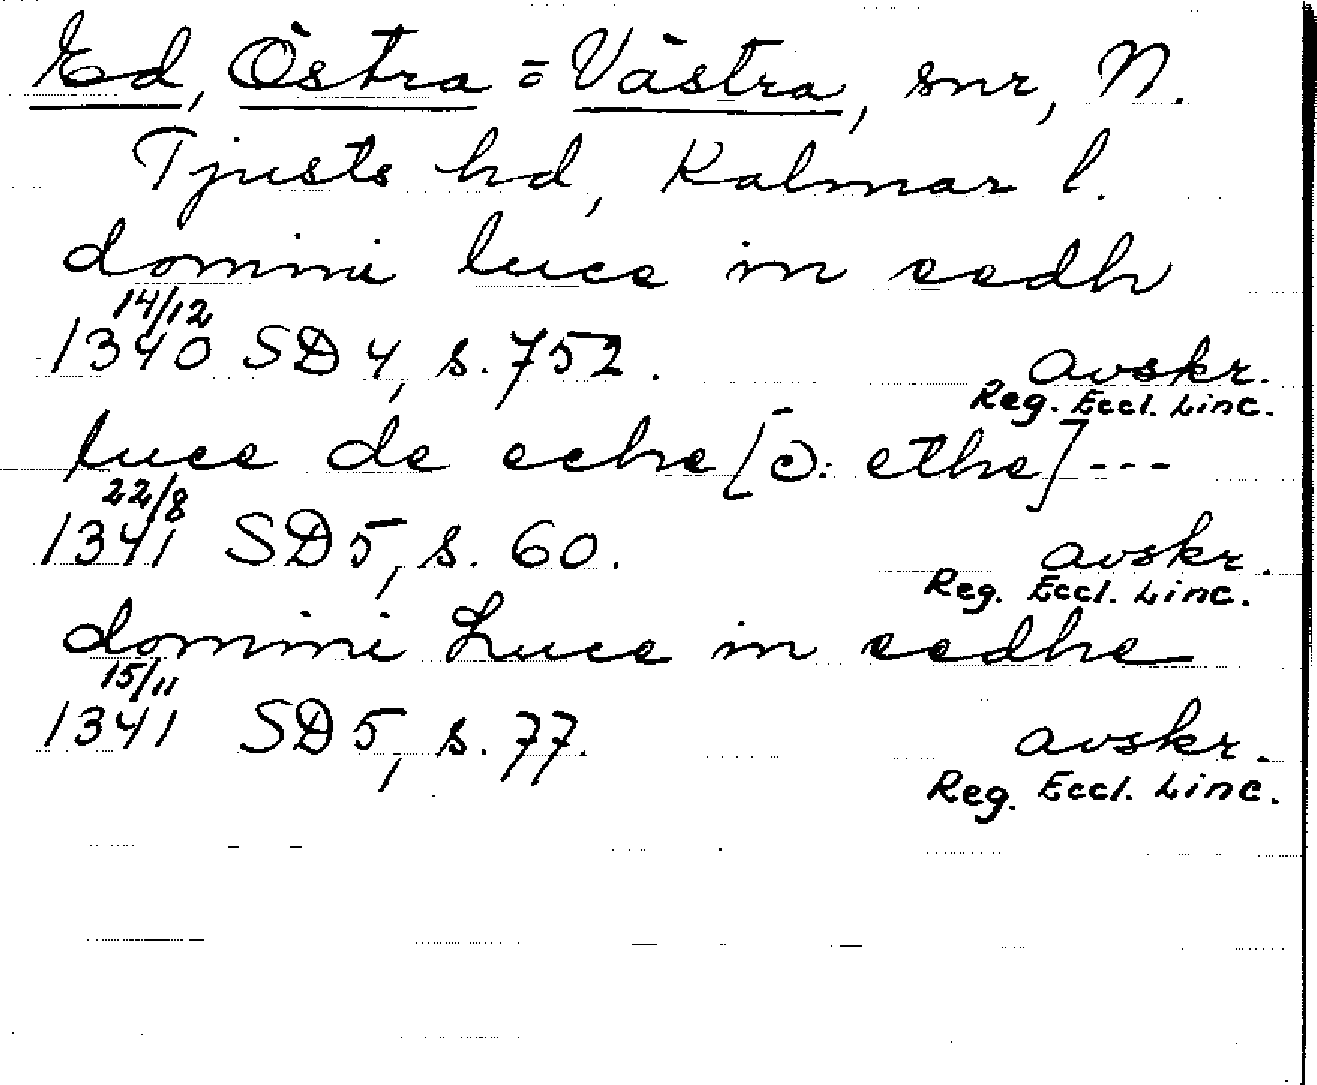 Ed, Östra = Västra, snr, N.
Tjusts hd, Kalmar l.
domini luce in eedh
14/12
1340 SD 4, s. 752. avskr.
Reg. Eccl. Linc.
luce de eche [ɔ: ethe] ---
22/8
1341 SD 5, s. 60. avskr.
Reg. Eccl. Linc.
domini Luce in eedhe
15/11
1341 SD 5, s. 77. avskr.
Reg. Eccl. Linc.